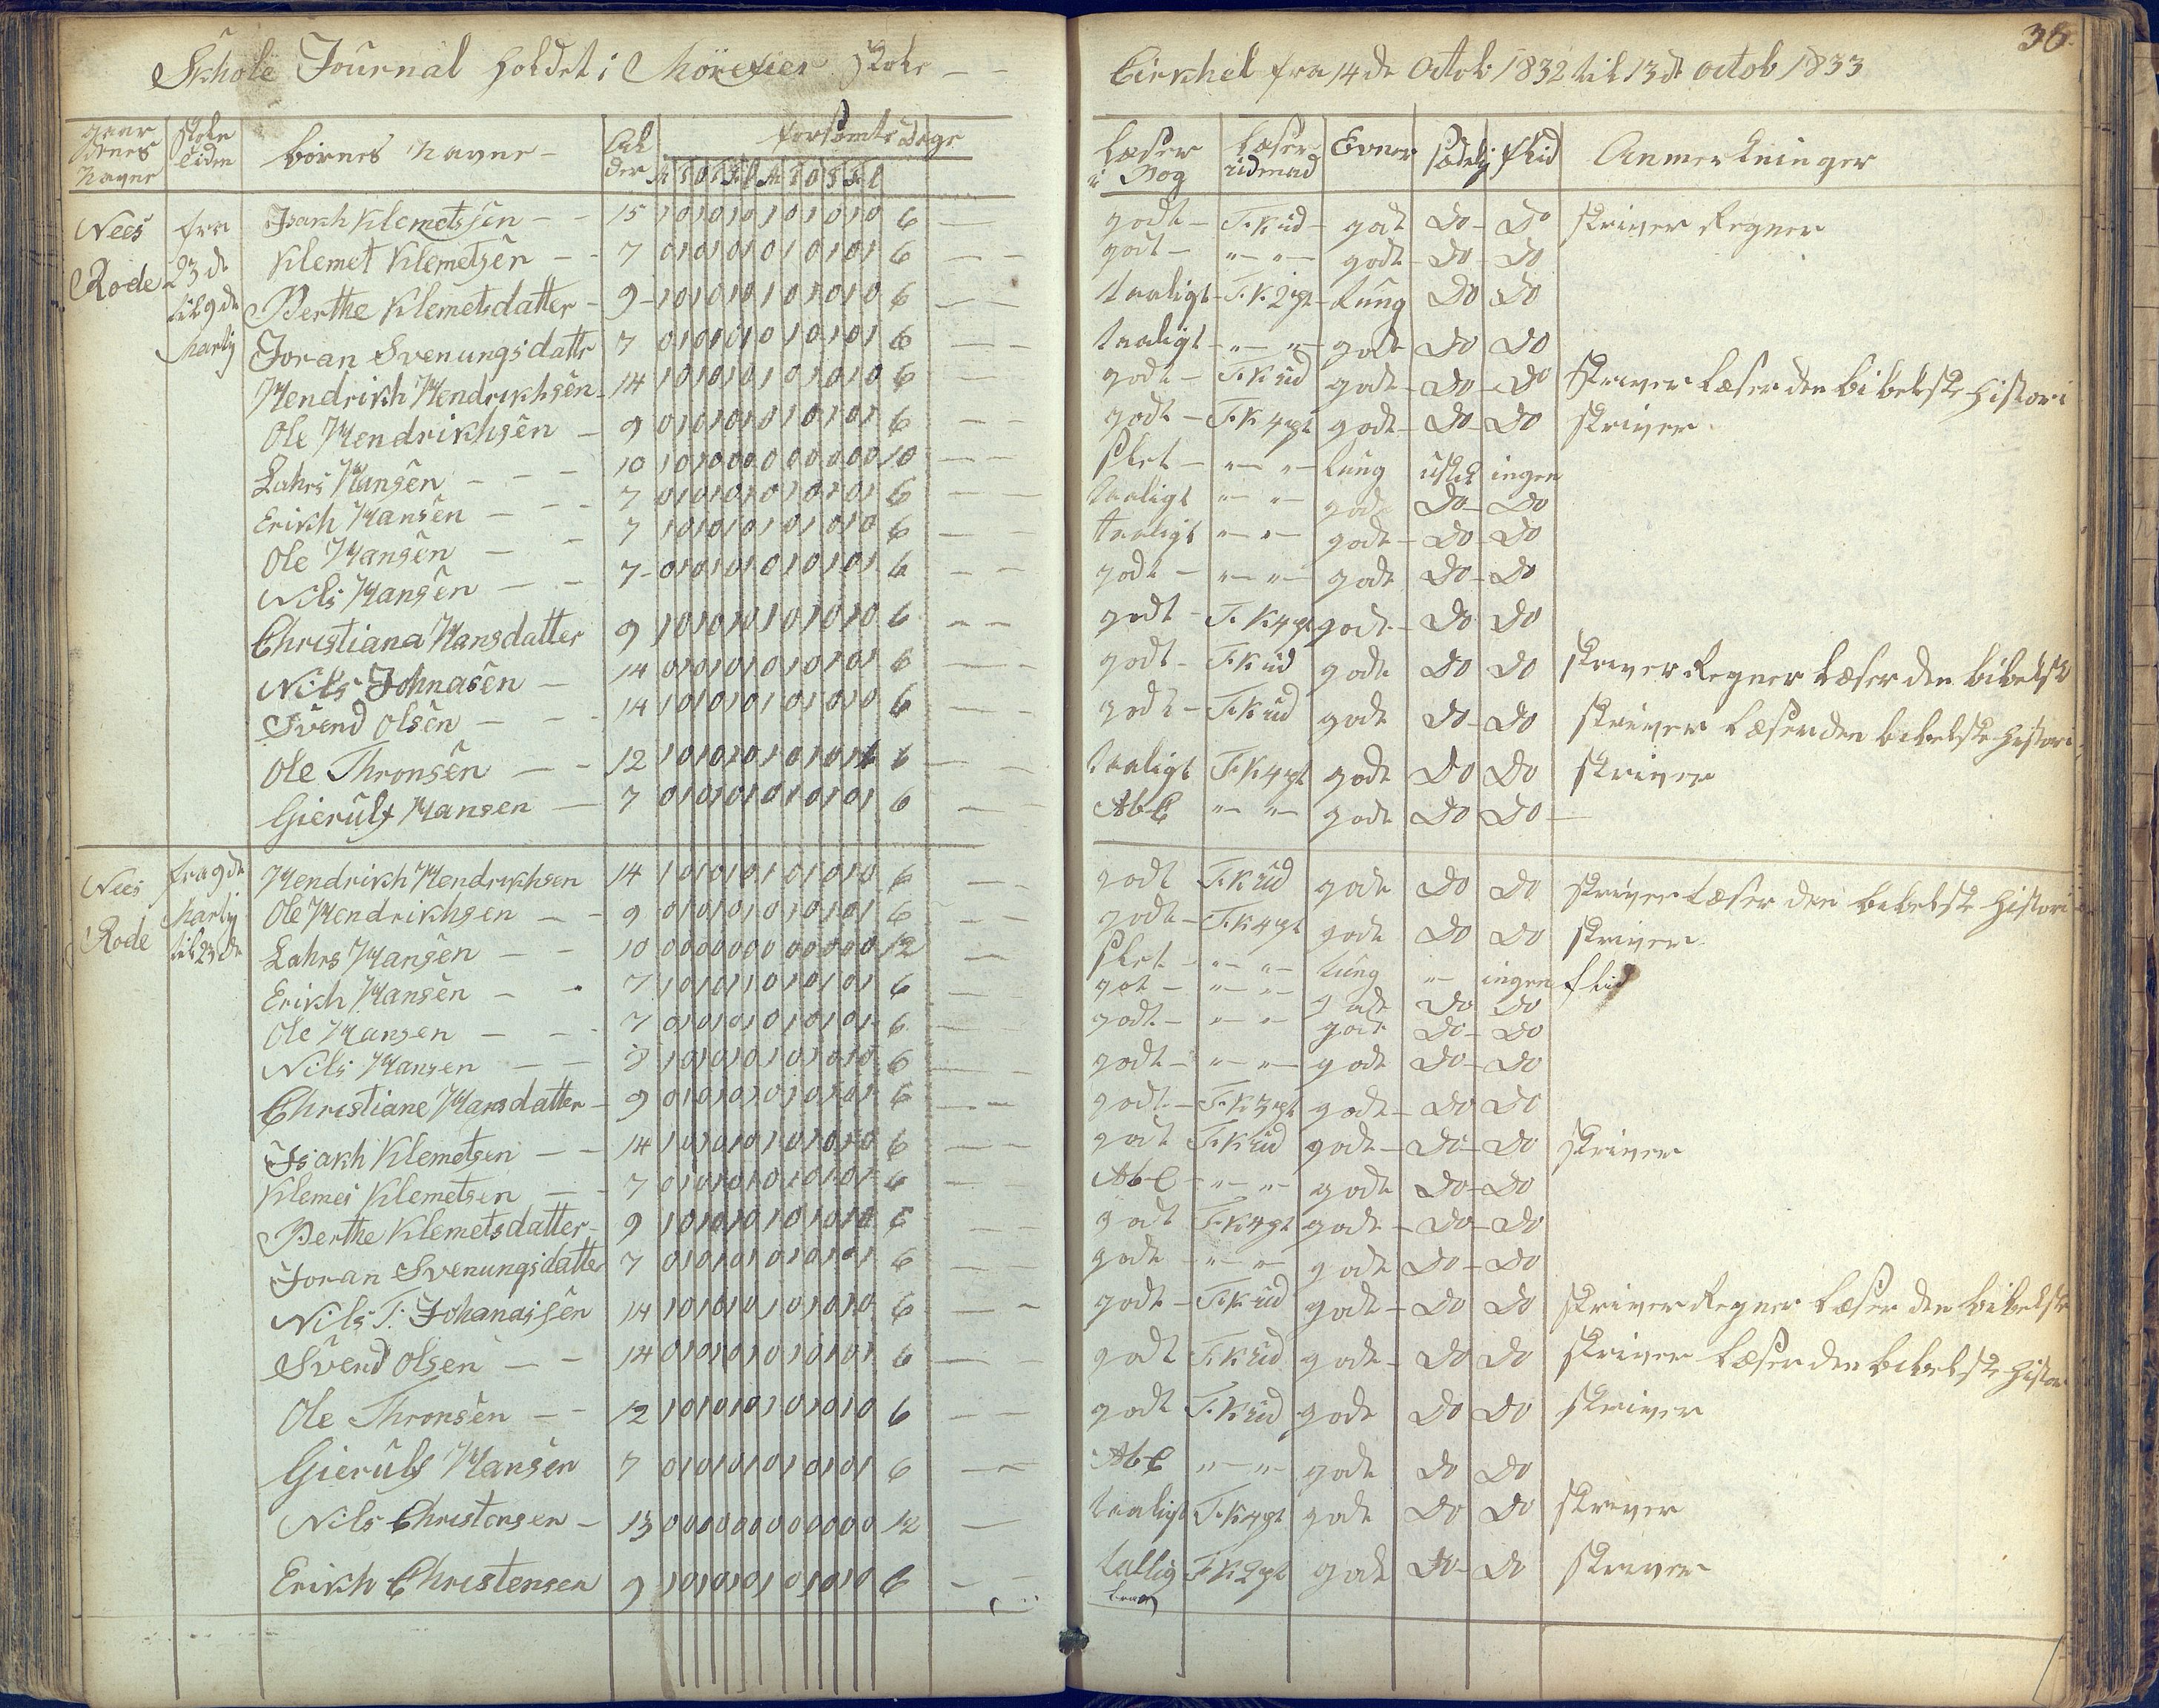 36.
Skhole Journal holdet i Mörefier skole
Cirkhel fra 14 de Octob 1832 til 13 de octob 1833
gaardenes Navne | skole tiden | börnes Navne | Alder | forsömte dage | M T O T F L M T O T F L | læser i Bog | læser udenad | Evner | sædelig | flid | Anmerkninger
Nees Rode | fra 23 de til 9 de Martij
Isakh Klemetssen | 15 | 1 0 1 0 1 0 1 0 1 0 1 0 | 6 | godt | F.K ud | gode | Do | Do | skriver Regner
Klemet Klemetsen | 7 | 0 1 0 1 0 1 0 1 0 1 0 1 | 6 | godt | " " | gode | Do | Do
Berthe Klemetsdatter | 9 | 1 0 1 0 1 0 1 0 1 0 1 0 | 6 | taaligt | F.K. 2 pt | tung | Do | Do
Joran Svenungsdattr | 7 | 0 1 0 1 0 1 0 1 0 1 0 1 | 6 | taaligt | " " | gode | Do | Do
Hendrikh Hendrikhsen | 14 | 1 0 1 0 1 0 1 0 1 0 1 0 | 6 | godt | F.K ud | gode | Do | Do | skriver læser den bibelske histori
Ole Hendrikhsen | 9 | 0 1 0 1 0 1 0 1 0 1 0 1 | 6 | godt | F.K 4 pt | gode | Do | Do | skriver
Lahrs Hansen | 10 | 1 0 1 0 0 0 0 0 0 0 0 0 | 10 | slet | " " | tung | | ingen
Erikh Hansen | 7 | 0 1 0 1 0 1 0 1 0 1 0 1 | 6 | taaligt | " " | gode | Do | Do
Ole Hansen | 7 | 1 0 1 0 1 0 1 0 1 0 1 0 | 6 | taaligt | " " | gode | Do | Do
Nils Hansen | 7 | 0 1 0 1 0 1 0 1 0 1 0 1 | 6 | godt | " " | gode | Do | Do
Christiana Hansdatter | 9 | 1 0 1 0 1 0 1 0 1 0 1 0 | 6 | godt | F.K 4 pt | gode | Do | Do
Nils Johnasen | 14 | 0 1 0 1 0 1 0 1 0 1 0 1 | 6 | godt | F.K ud | gode | Do | Do | skriver Regner læser den bibelsk
Svend Olsen | 14 | 1 0 1 0 1 0 1 0 1 0 1 0 | 6 | godt | F.K ud | gode | Do | Do | skriver læser den bibelske histori
Ole Thronsen | 12 | 1 0 1 0 1 0 1 0 1 0 1 | 6 | taaligt | F.K 4 pt | gode | Do | Do | skriver
Gierulf Hansen | 7 | 0 1 0 1 0 1 0 1 0 1 0 1 | 6 | AbC | " " | gode | Do | Do
Nees Rode | fra 9 de Martij til 23 de
Hendrikh Hendrikhsen | 14 | 1 0 1 0 1 0 1 0 1 0 1 0 | 6 | godt | F.K ud | gode | Do | Do | skriver læser den bibelske histori
Ole Hendrikhsen | 9 | 0 1 0 1 0 1 0 1 0 1 0 1 | 6 | godt | F.K 4 pt | gode | Do | Do | skriver
Lahrs Hansen | 10 | 0 0 0 0 0 0 0 0 0 0 0 0 | 12 | slet | " " | tung | " | ingen flid
Erikh Hansen | 7 | 1 0 1 0 1 0 1 0 1 0 1 | 6 | got | " " | gode | Do | Do
Ole Hansen | 7 | 0 1 0 1 0 1 0 1 0 1 0 1 | 6 | godt | " " | gode | Do | Do
Nils Hansen | 8 | 1 0 1 0 1 0 1 0 1 0 1 0 | 6 | godt | " " | gode | Do | Do
Christiane Hansdatter | 9 | 0 1 0 1 0 1 0 1 0 1 0 1 | 6 | godt | F.K 3 pt | gode | Do | Do
Isakh Klemetsen | 14 | 1 0 1 0 1 0 1 0 1 0 1 0 | 6 | godt | F.K ud | gode | Do | Do | skriver
Klemet Klemetsen | 7 | 0 1 0 1 0 1 0 1 0 1 0 1 | 6 | AbC | " " | gode | Do | Do
Berthe Klemetsdatter | 9 | 1 0 1 0 1 0 1 0 1 0 1 0 | 6 | godt | F.K 4 pt | gode | Do | Do
Joran Svenungsdatter | 7 | 0 1 0 1 0 1 0 1 0 1 0 1 | 6 | godt | " " | gode | Do | Do
Nils T: Johanassen | 14 | 1 0 1 0 1 0 1 0 1 0 1 0 | 6 | godt | F.K ud | gode | Do | Do | skriver Regner læser den bibelske
Svend Olsen | 14 | 0 1 0 1 0 1 0 1 0 1 0 1 | 6 | godt | F.K ud | gode | Do | Do | skriver læser den bibelske histor
Ole Thronsen | 12 | 1 0 1 0 1 0 1 0 1 0 1 0 | 6 | godt | F.K ud | gode | Do | Do | skriver
Gierulf Hansen | 7 | 0 1 0 1 0 1 0 1 0 1 0 1 | 6 | AbC | " " | gode | Do | Do
Nils Christensen | 13 | 0 0 0 0 0 0 0 0 0 0 0 0 | 12 | taaligt | F.K 4 pt | gode | Do | Do | skriver
Erikh Christensen | 9 | 1 0 1 0 1 0 1 0 1 0 1 0 | 6 | F.K 2 pt | gode | Do | Do | skriver